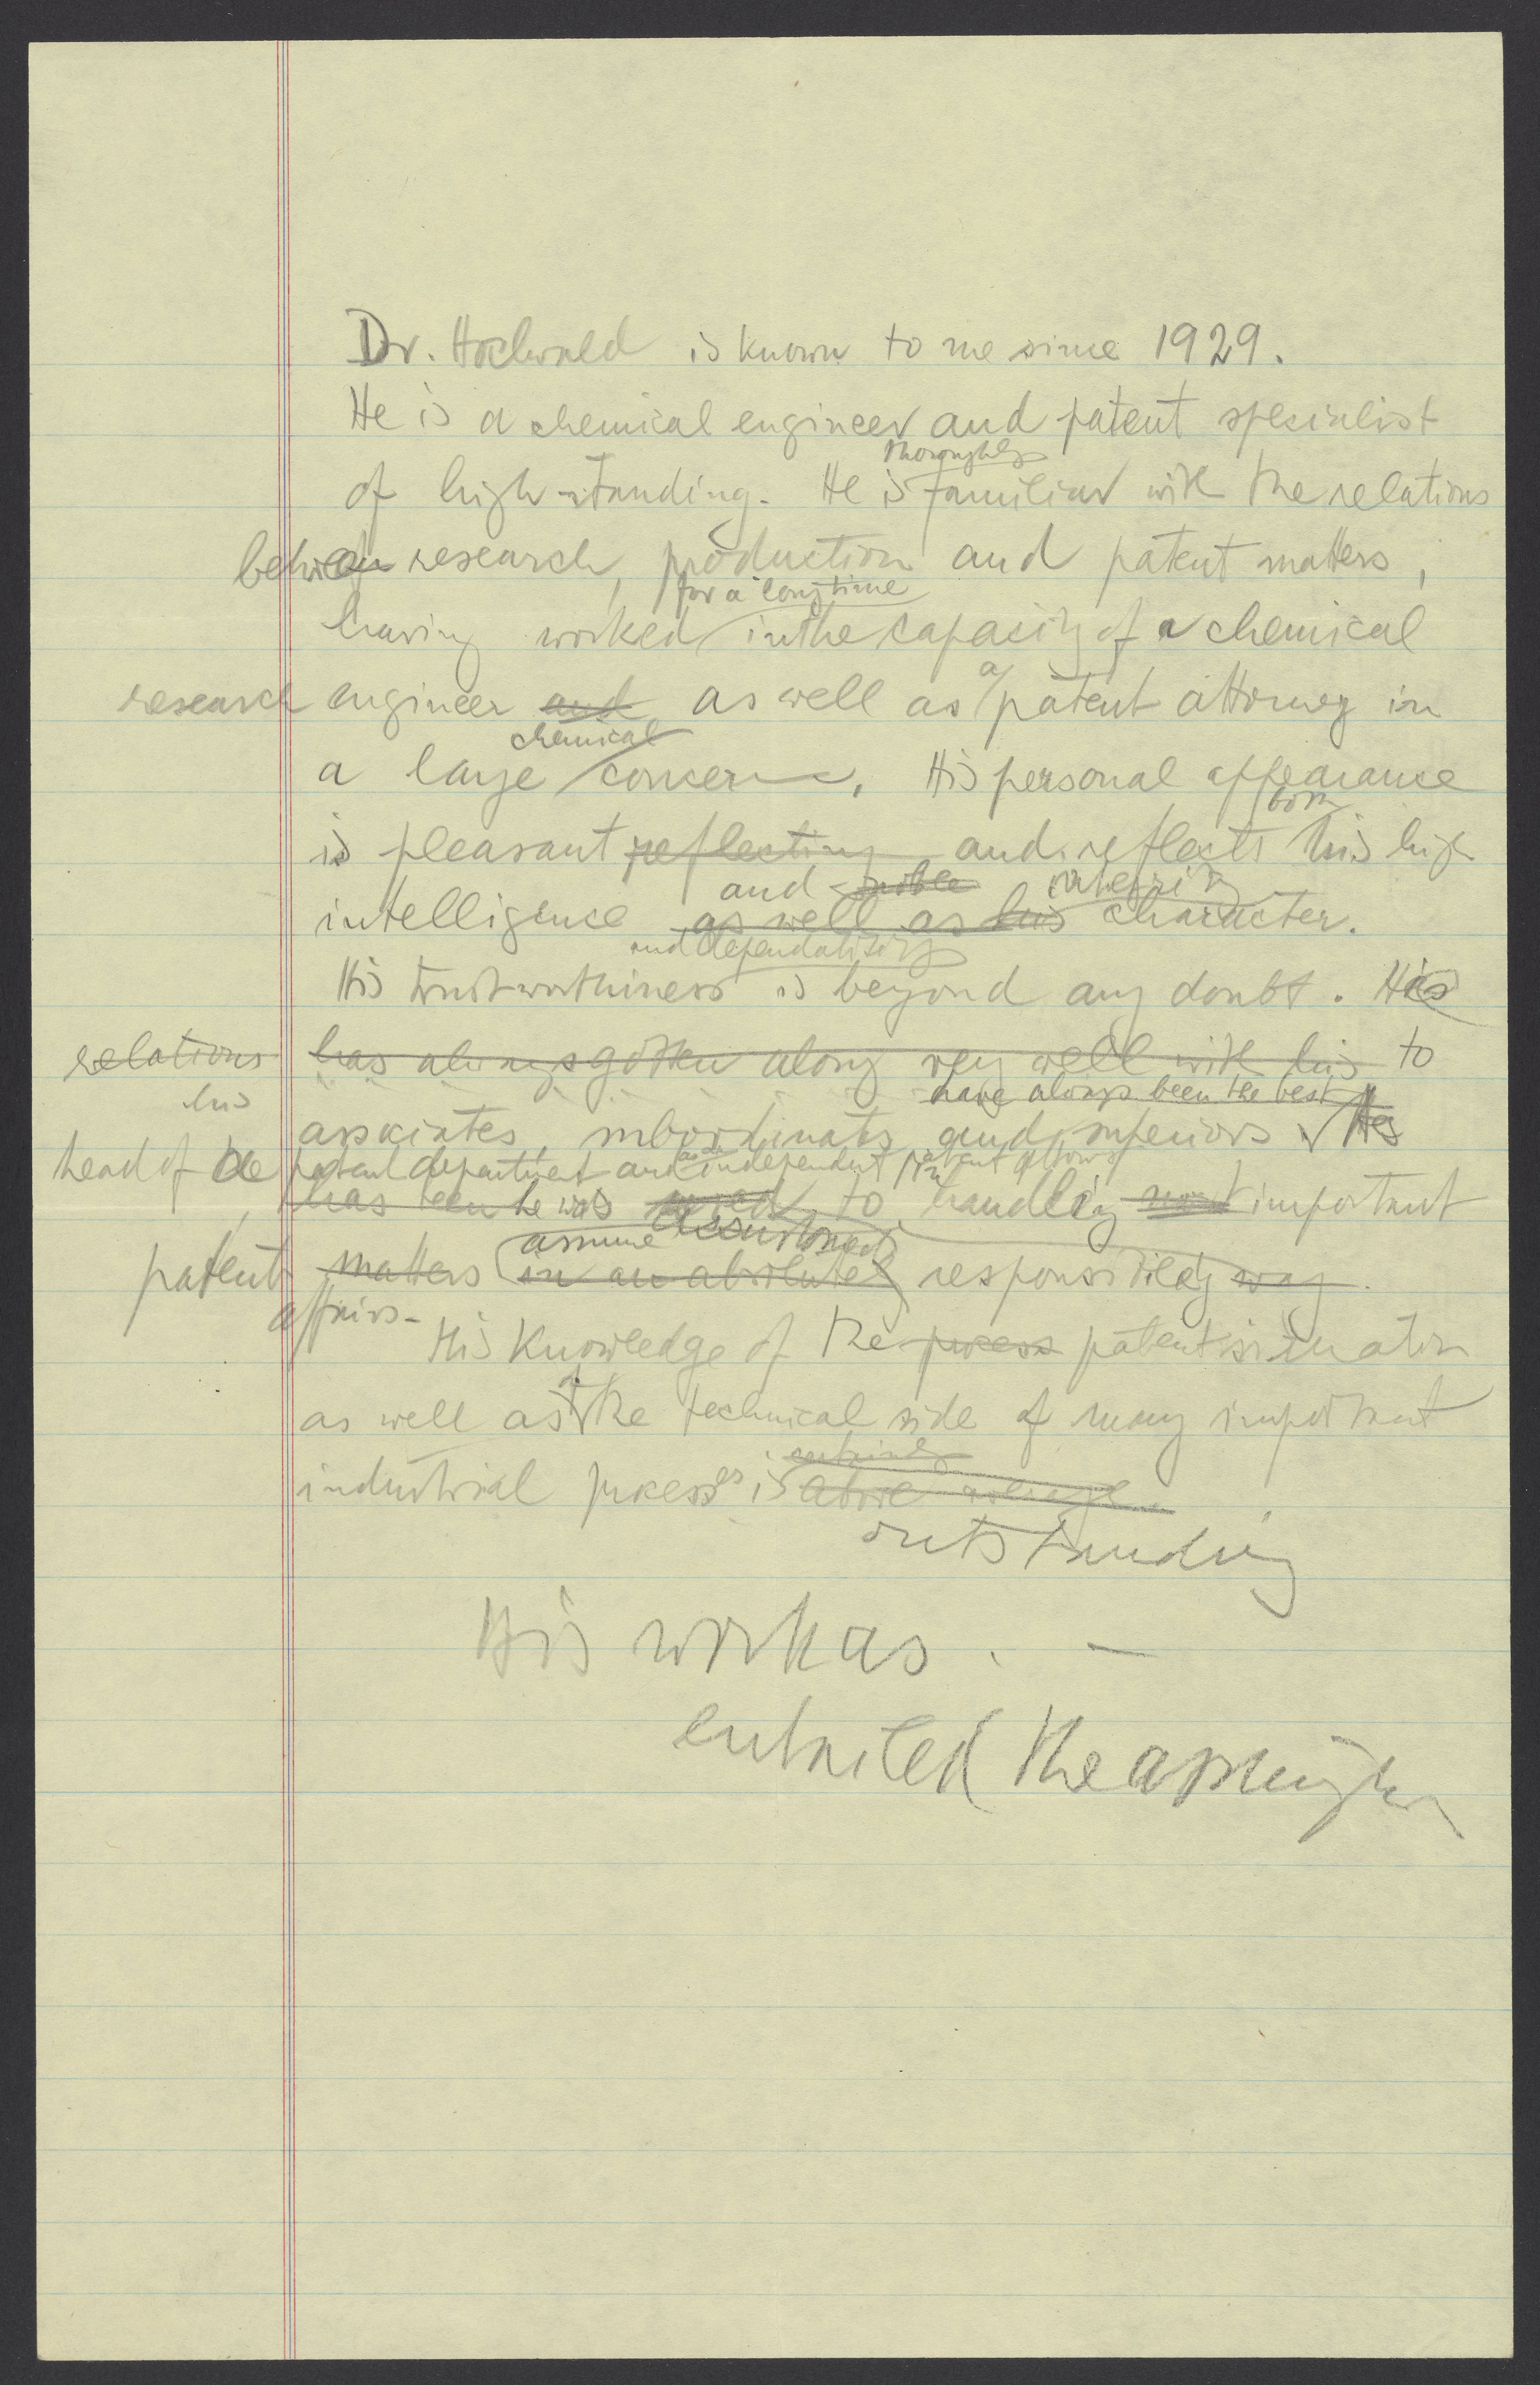 Dr. Hochwald is known to me since 1929.
He is a chemical engineer and patent specialist
thoroughly
of high standing. He is familiar with the relations
between research, production and patent matters,
for a long time
having worked in the capacity of a chemical
a
research engineer and as well as patent attorney in
chemical
a large concern. His personal appearance
both
is pleasant reflecting and reflects his high
and noble integrity
intelligence as well as his character.
and dependability
His trustworthiness is beyond any doubt. His
relations has always gotten along very well with his to
his have always been the best
associates, subordinates and superiors. As
head of the patent department and as independent patent attorney
has been he was used to handling most important
assume accustomed
patent matters in an absolutely responsibility way.
affairs.
His knowledge of the process patent situation
of
as well as the technical side of many important
certainly
industrial processes is above average.
outstanding
His work as . —
entailed the